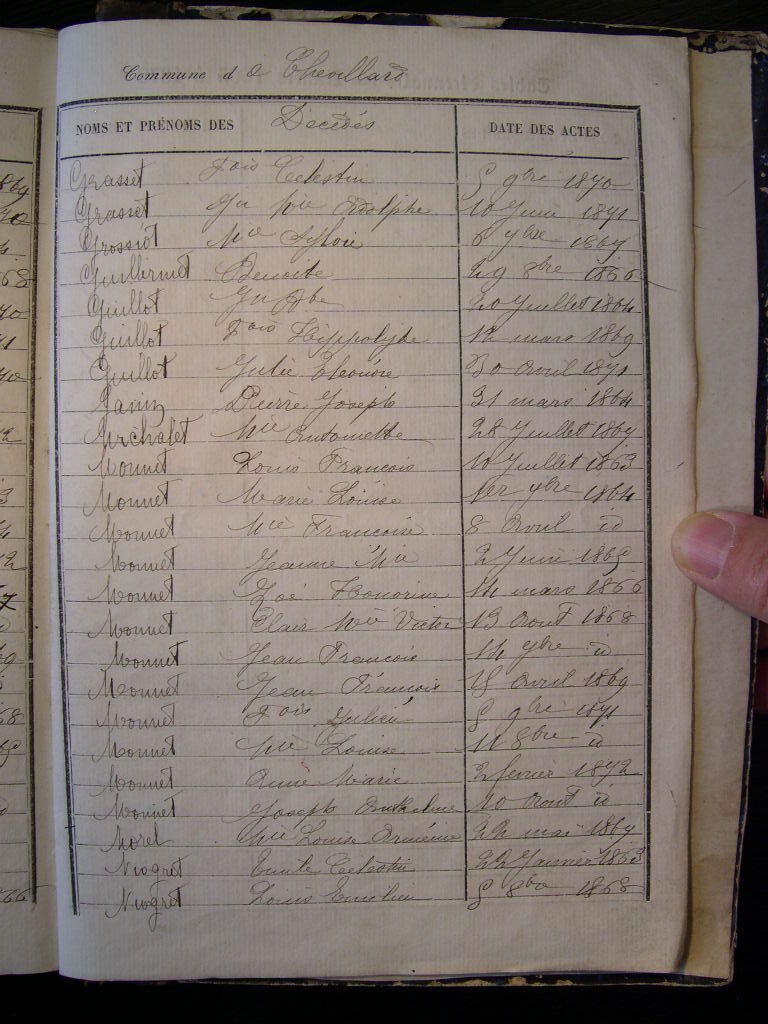 Commune d e Chevillard
NOMS ET PRÉNOMS DES Décédés DATE DES ACTES
Grasset fois Celestin 5 9bre 1870
Grasset Jn Mie Adolphe 10 Juin 1871
Grossiot Mie Sylvie 6 7bre 1867
Guillermet Benoite 29 8bre 1866
Guillot Jn Bte 20 Juillet 1864
Guillot fois Hippolyte 12 mars 1869
Guillot Julie Eléonore 30 Avril 1871
Janin Pierre Joseph 31 mars 1864
Michalet Mie Antoinette 28 Juillet 1867
Monnet Louis François 10 Juillet 1863
Monnet Marie Louise 1er 7bre 1864
Monnet Mie Francoise 8 Avril id
Monnet Jeanne Mie 2 Juin 1865
Monnet Zoé Honorine 14 mars 1866
Monnet Clair Mie Victor 13 Aout 1868
Monnet Jean Francois 14 7bre id
Monnet Jean Francois 15 Avril 1869
Monnet fois Julien 5 9bre 1871
Monnet Mie Louise 11 8bre id
Monnet Anne Marie 2 fevrier 1872
Monnet Joseph Anthelme 10 Aout id
Morel Mie Louise 22 mai 1867
Niogret Emile Celestin 22 Janvier 1863
Niogret Louis Emilien 5 8bre 1868